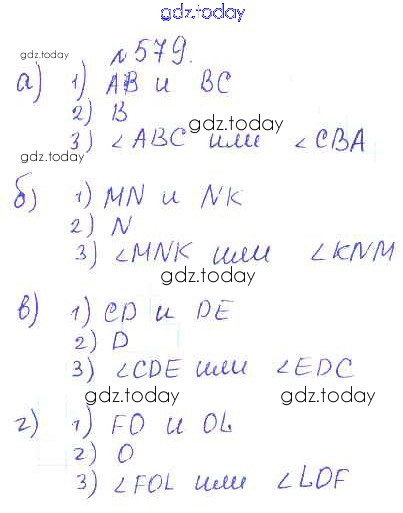 gdz.today
№579.
gdz.today
а) 1) AB и BC
2) B
gdz.today
3) ∠ABC или ∠CBA
gdz.today
б) 1) MN и NK
2) N
3) ∠MNK или ∠KNM
gdz.today
в) 1) CD и DE
2) D
3) ∠CDE или ∠EDC
gdz.today gdz.today
г) 1) FO и OL
2) O
3) ∠FOL или ∠LOF
gdz.today